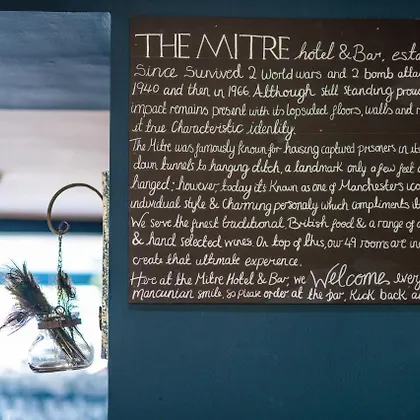 THE MITRE hotel & Bar, esta
Since Survived 2 World wars and 2 bomb atta
1940 and then in 1966. Although still standing prou
impact remains present with its lopsided floors, walls and r
it true Characteristic identity.
The Mitre was famously known for housing captured prisoners in its
down tunnels to hanging ditch, a landmark only a few feet a
hanged; however, today it's Known as one of Manchesters u
individual style & Charming personaly which compliments its
We serve the finest traditional British food & a range of
& hand selected wines. On top of this, our 49 rooms are in
create that ultimate experience.
Here at the Mitre Hotel & Bar, we Welcome every
mancunian smile, so please order at the bar, Kick back a